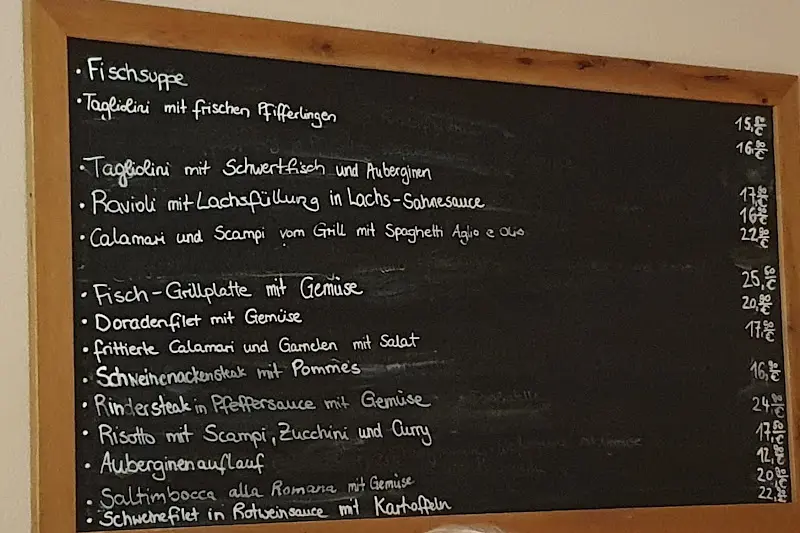 • Fischsuppe 15,50 €
• Tagliolini mit frischen Pfifferlingen 16,90 €
• Tagliolini mit Schwertfisch und Auberginen 17,90 €
• Ravioli mit Lachsfüllung in Lachs-Sahnesauce 16,90 €
• Calamari und Scampi vom Grill mit Spaghetti Aglio e Olio 22,90 €
• Fisch-Grillplatte mit Gemüse 25,50 €
• Doradenfilet mit Gemüse 20,90 €
• frittierte Calamari und Garnelen mit Salat 17,90 €
• Schweinenackensteak mit Pommes 16,90 €
• Rindersteak in Pfeffersauce mit Gemüse 24,90 €
• Risotto mit Scampi, Zucchini und Curry 17,90 €
• Auberginenauflauf 12,90 €
• Saltimbocca alla Romana mit Gemüse 20,90 €
• Schweinefilet in Rotweinsauce mit Kartoffeln 22,90 €